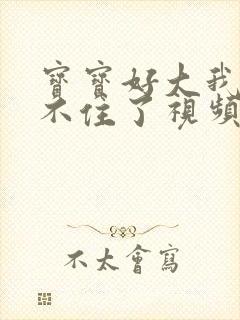 寶寶好大我
不住了視頻
不太會寫